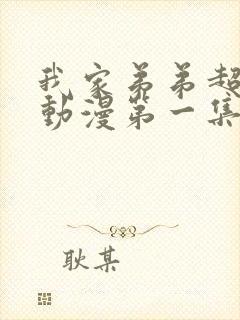 我家弟弟超
動漫第一集
耿某